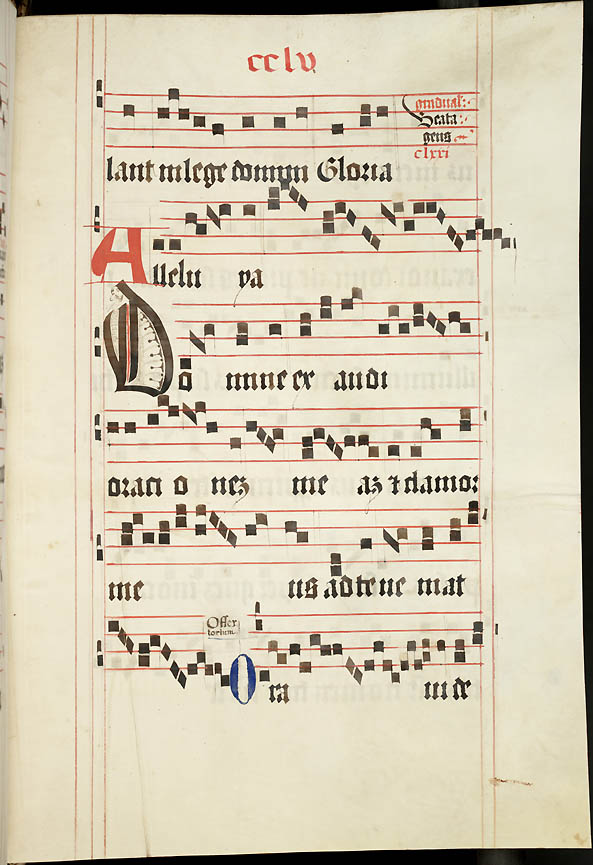 cclv
gradual:
Beata
gens
clxxi
lant in lege domini Gloria
Allelu ya
Do mine ex audi
oraci o nez me az ⁊ clamor
me us ad te ue mat
Offer
torium
O ra ui de